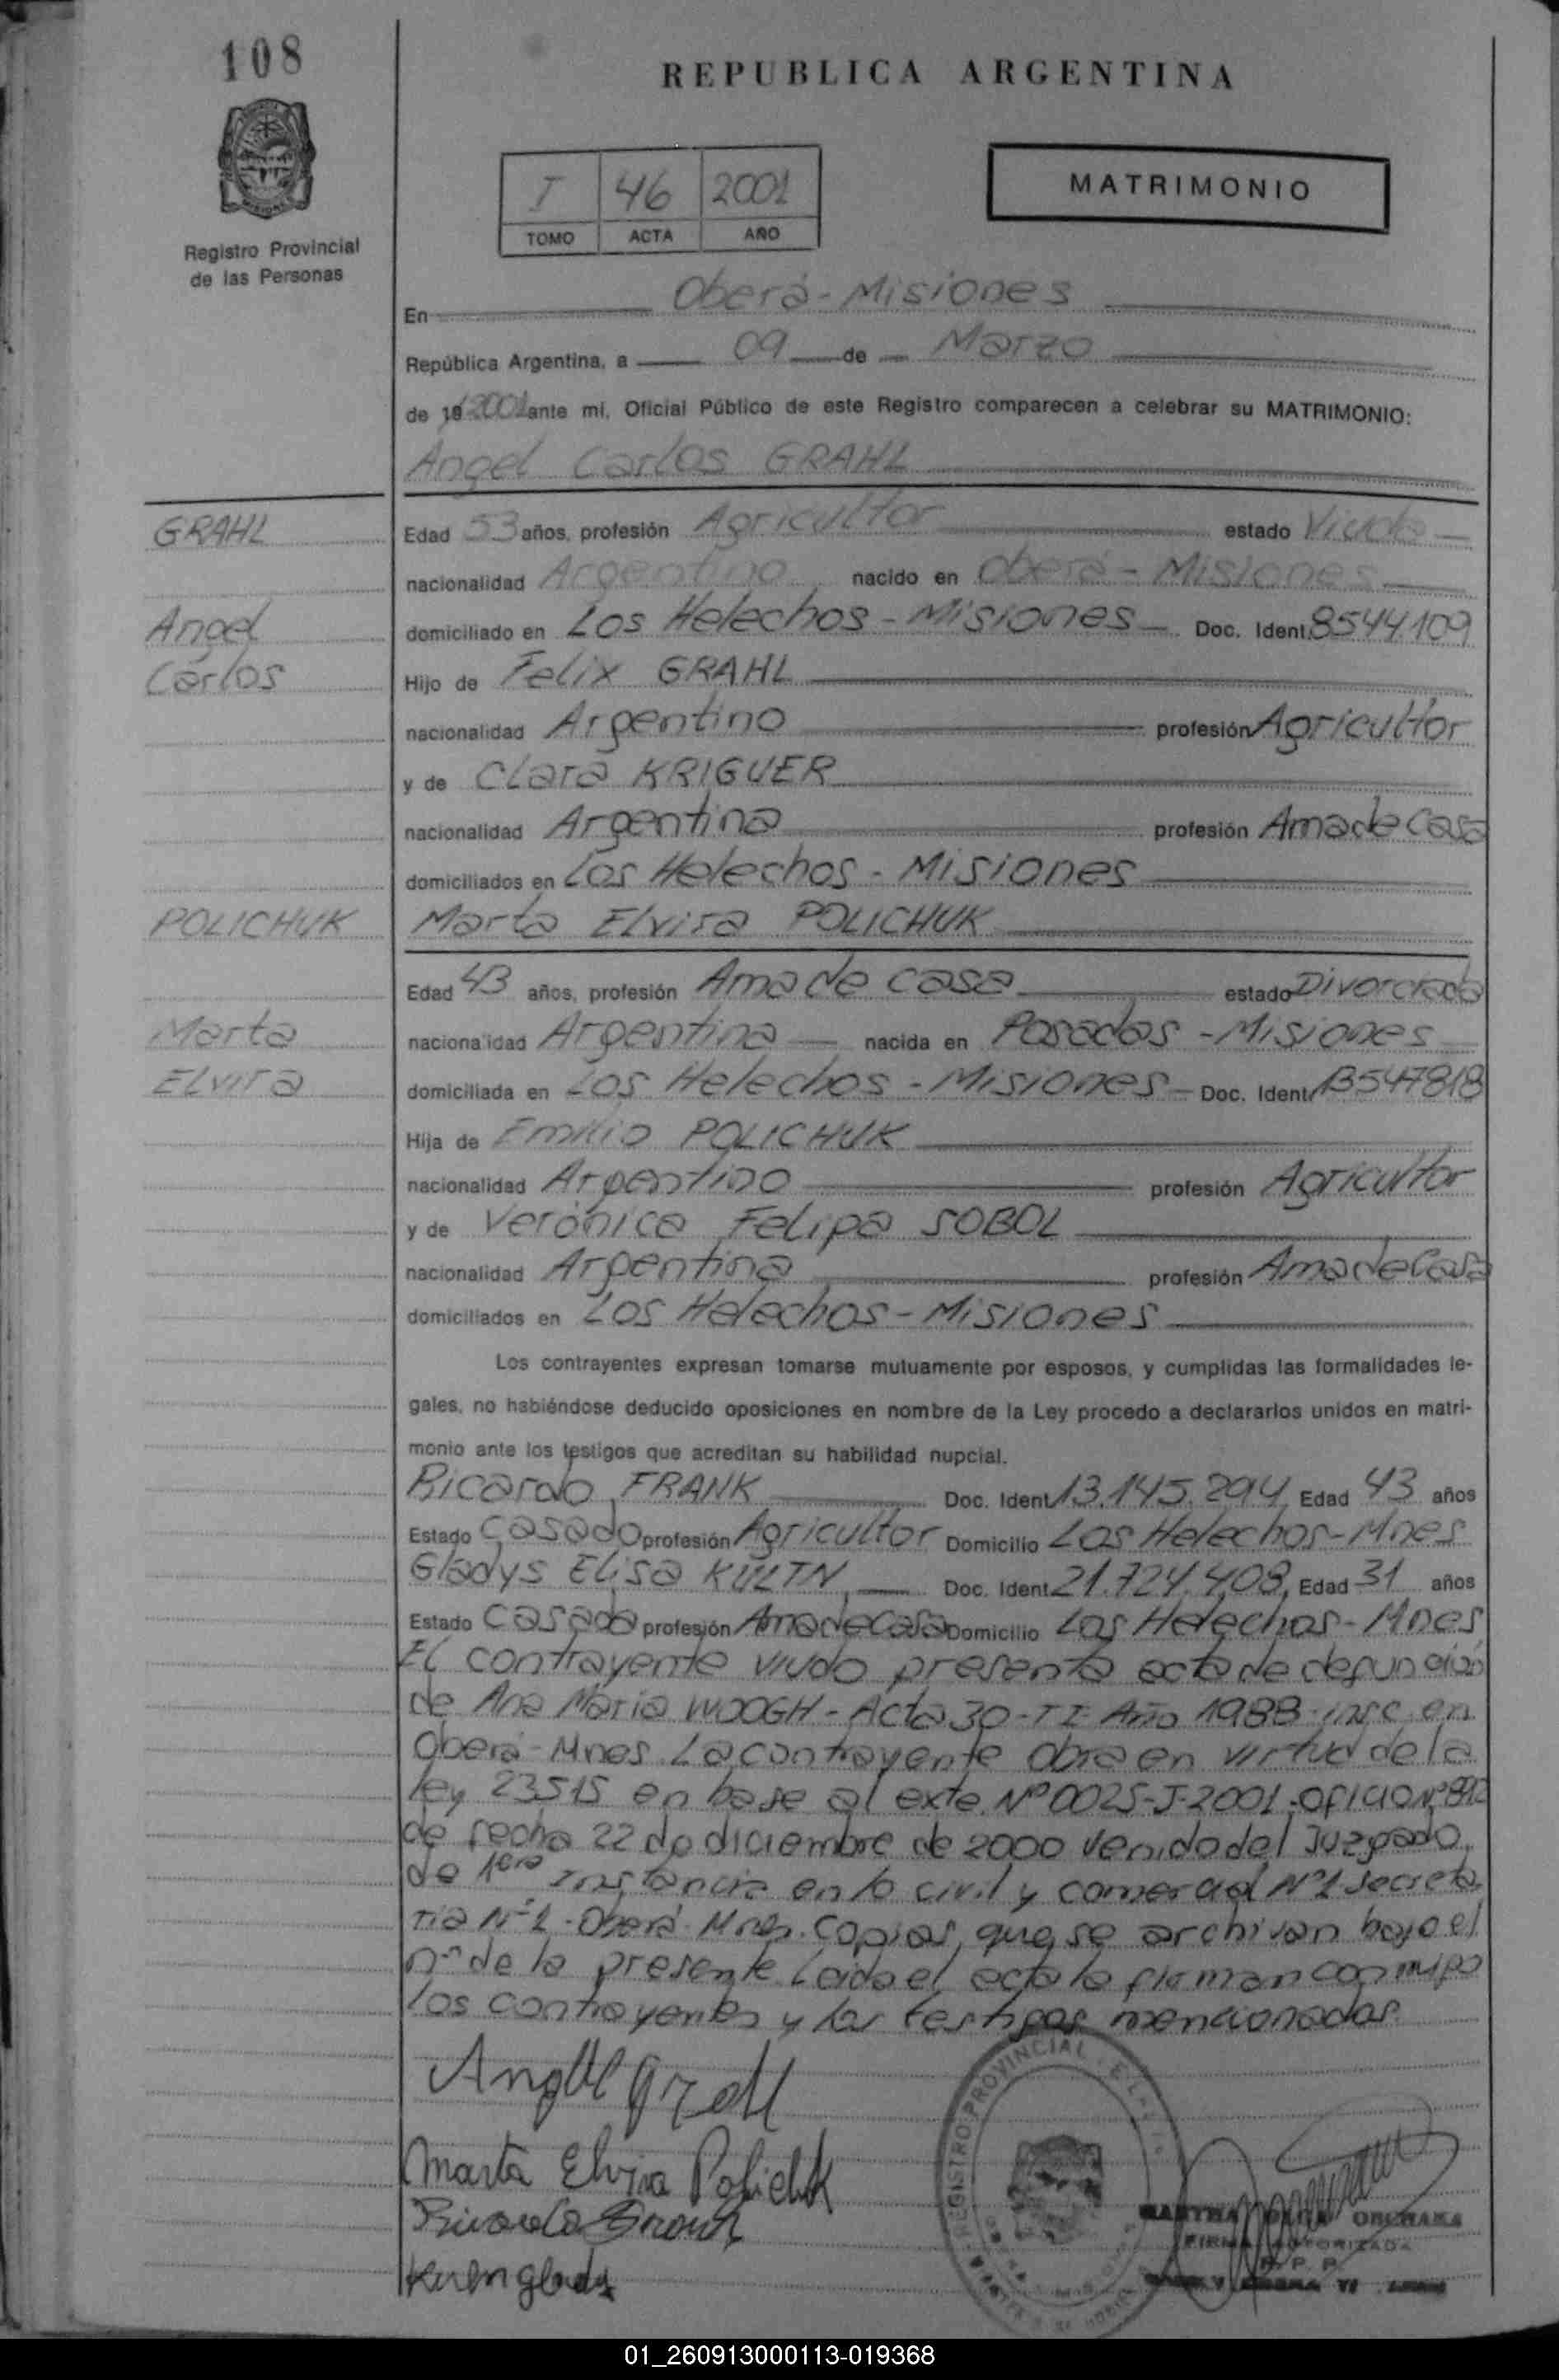 108
REPUBLICA ARGENTINA
I 46 2001
TOMO ACTA AÑO
MATRIMONIO
Registro Provincial
de las Personas
En Oberá - Misiones
República Argentina, a 09 de Marzo
de 19 2001 ante mi, Oficial Público de este Registro comparecen a celebrar su MATRIMONIO:
Angel Carlos GRAHL
GRAHL
Edad 53 años, profesión Agricultor estado Viudo
nacionalidad Argentino nacido en Oberá - Misiones
Angel
domiciliado en Los Helechos - Misiones Doc. Ident. 8544109
Carlos
Hijo de Felix GRAHL
nacionalidad Argentino profesión Agricultor
y de Clara KRIGUER
nacionalidad Argentina profesión Ama de Casa
domiciliados en Los Helechos - Misiones
POLICHUK
Marta Elvira POLICHUK
Edad 43 años, profesión Ama de casa estado Divorciada
Marta
nacionalidad Argentina nacida en Posadas - Misiones
Elvira
domiciliada en Los Helechos - Misiones Doc. Ident. 13547818
Hija de Emilio POLICHUK
nacionalidad Argentino profesión Agricultor
y de Verónica Felipa SOBOL
nacionalidad Argentina profesión Ama de Casa
domiciliados en Los Helechos - Misiones
Los contrayentes expresan tomarse mutuamente por esposos, y cumplidas las formalidades le-
gales, no habiéndose deducido oposiciones en nombre de la Ley procedo a declararlos unidos en matri-
monio ante los testigos que acreditan su habilidad nupcial.
Ricardo FRANK Doc. Ident. 13.145.294 Edad 43 años
Estado Casado profesión Agricultor Domicilio Los Helechos - Mnes
Gladys Elisa Doc. Ident. 21.724.408 Edad 31 años
Estado Casada profesión Ama de Casa Domicilio Los Helechos - Mnes
El contrayente viudo presenta acta de defunción
de Ana Maria WOOGH - Acta 30 - T I - Año 1988 - insc. en
Oberá - Mnes. La contrayente obra en virtud de la
ley 23515 en base al exte. Nº 0025-J-2001. oficio Nº
de fecha 22 de diciembre de 2000 venido del Juzgado
de 1era Instancia en lo civil y comercial Nº 1 Secreta
ria Nº 1 - Oberá - Mnes. Copias, que se archivan bajo el
nº de la presente Leida el acta la firman conmigo
los contrayentes y los testigos mencionados.
Marta Elvira Polichuk
REGISTRO PROVINCIAL
01_260913000113-019368